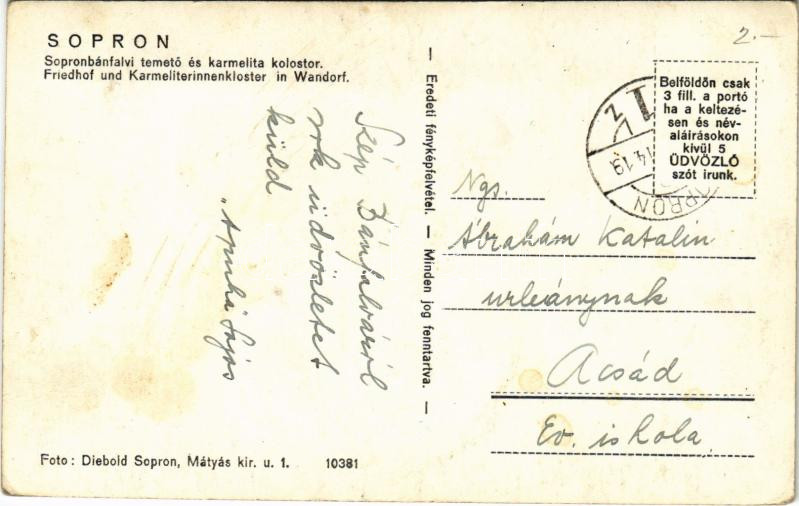 SOPRON
Sopronbánfalvi temető és karmelita kolostor.
Friedhof und Karmeliterinnenkloster in Wandorf.
Szép Bánfalváról
sok üdvözletet
küld
Lajos
— Eredeti fényképfelvétel. — Minden jog fenntartva. —
2.-
Belföldön csak
3 fill. a portó
ha a keltezé-
sen és név-
aláírásokon
kívül 5
ÜDVÖZLŐ
szót irunk.
Ngs.
Ábrahám Katalin
urleánynak
Acsád
Ev. iskola
Foto: Diebold Sopron, Mátyás kir. u. 1. 10381